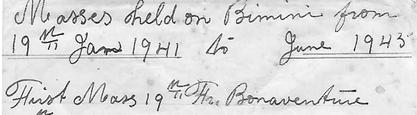 Masses held on Bimini from
19th Jan 1941 to June 1945
First Mass 19th Fr. Bonaventure